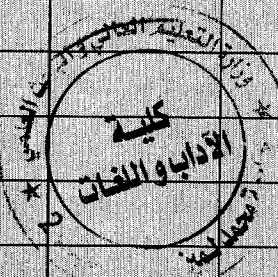 وزارة التعليم العالي والبحث العلمي
كلية
الآداب واللغات
محمد لمين
2